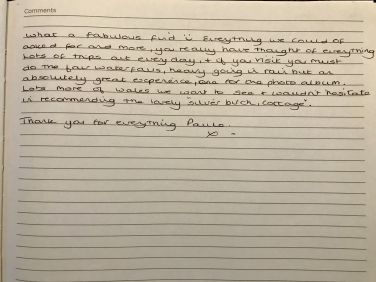 Comments
What a fabulous find ü Everything we could of
asked for and more, you really have thought of everything
Lots of trips out every day, + if you visit you must
do the four waterfalls, heavy going in rain but an
absolutely great experience, one for the photo album.
Lots more of Wales we want to see + wouldn't hesitate
in recommending the lovely 'silver birch, cottage'.
Thank you for everything Paula.
x